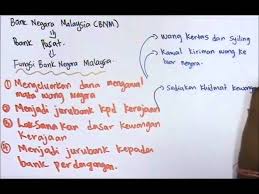 Bank Negara Malaysia (BNM)
Bank Pusat.
Fungsi Bank Negara Malaysia.
① Mengeluarkan dana mengawal
mata wang negara
② Menjadi jurubank kpd kerajaan
③ Laksanakan dasar kewangan
Kerajaan
④ Menjadi jurubank kepada
bank perdagangan.
wang kertas dan syiling
Kawal kiriman wang ke
luar negara.
Sediakan khidmat kewangan